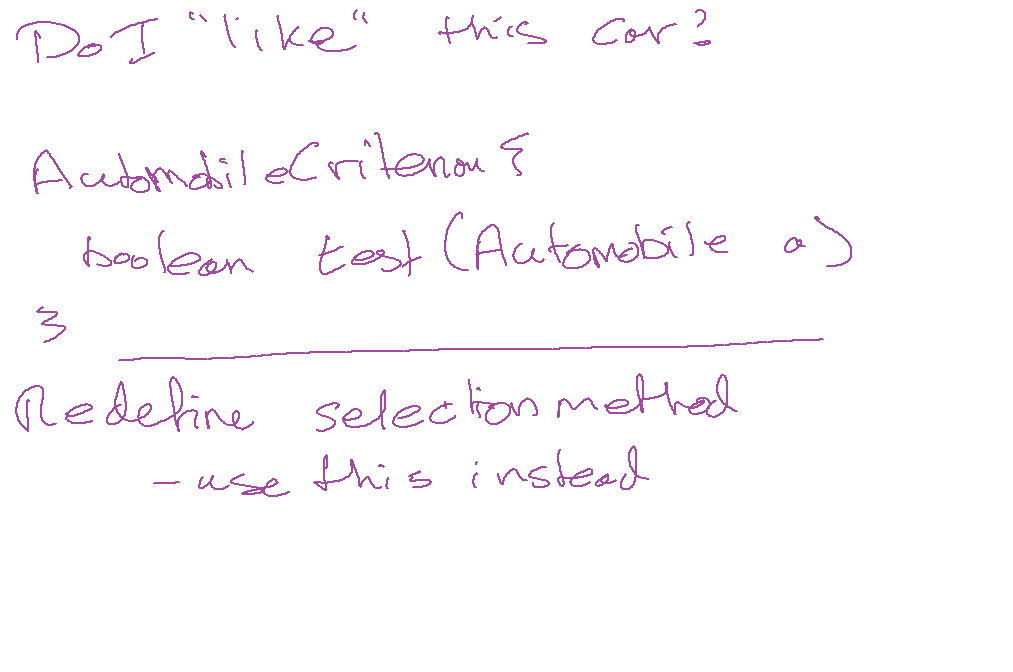 Do I "like" this car?
AutomobileCriterion {
boolean test (Automobile a)
}
Redefine selection method
- use this instead